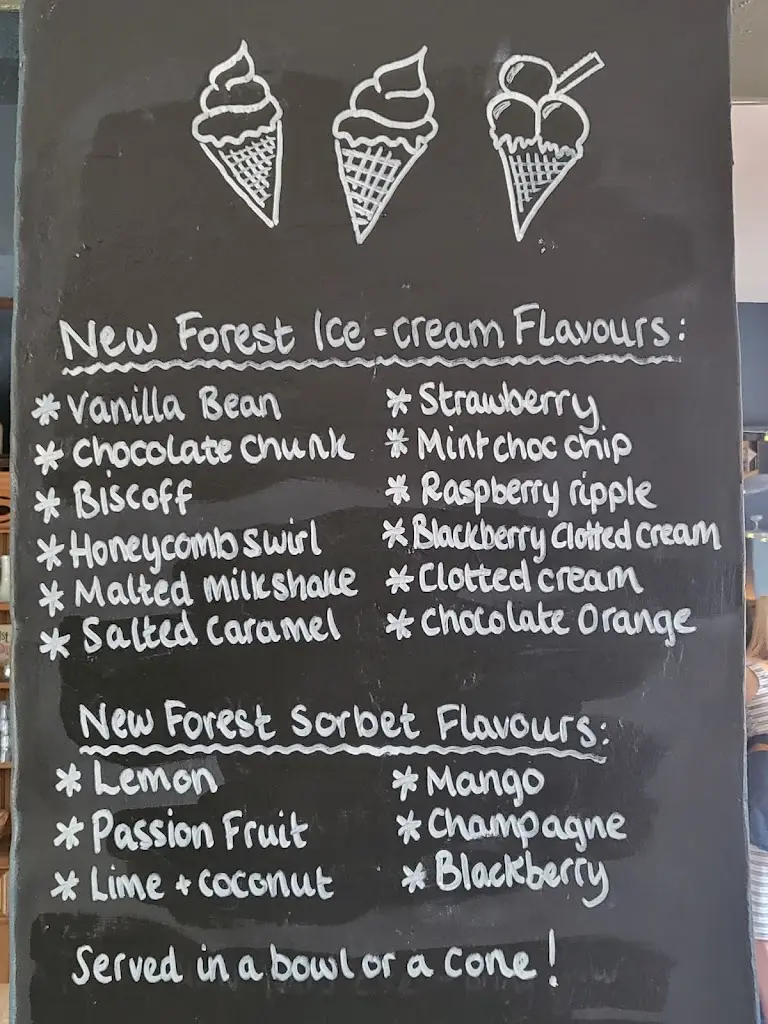 New Forest Ice-cream Flavours:
* Vanilla Bean
* Chocolate Chunk
* Biscoff
* Honeycomb swirl
* Malted milkshake
* Salted Caramel
* Strawberry
* Mint choc chip
* Raspberry ripple
* Blackberry Clotted cream
* Clotted cream
* Chocolate Orange
New Forest Sorbet Flavours:
* Lemon
* Passion Fruit
* Lime + coconut
* Mango
* Champagne
* Blackberry
Served in a bowl or a cone!